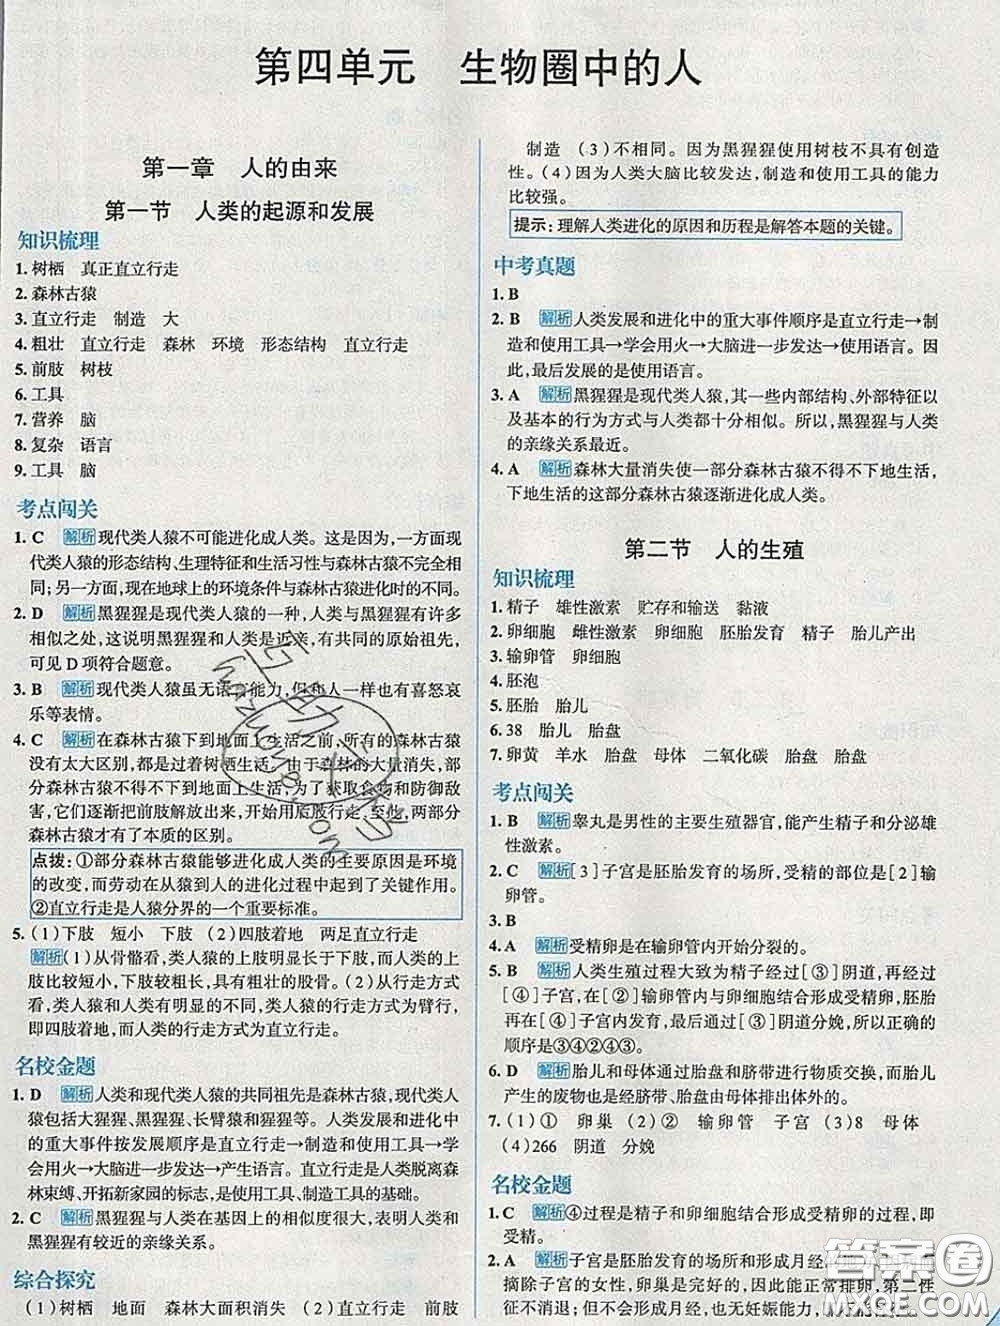 第四单元 生物圈中的人
第一章 人的由来
第一节 人类的起源和发展
知识梳理
1. 树栖 真正直立行走
2. 森林古猿
3. 直立行走 制造 大
4. 粗壮 直立行走 森林 环境 形态结构 直立行走
5. 前肢 树枝
6. 工具
7. 营养 脑
8. 复杂 语言
9. 工具 脑
考点闯关
1. C 解析 现代类人猿不可能进化成人类。这是因为,一方面现
代类人猿的形态结构、生理特征和生活习性与森林古猿不完全相
同;另一方面,现在地球上的环境条件与森林古猿进化时的不同。
2. D 解析 黑猩猩是现代类人猿的一种,人类与黑猩猩有许多
相似之处,这说明黑猩猩和人类是近亲,有共同的原始祖先,
可见 D 项符合题意。
3. B 解析 现代类人猿虽无语言能力,但和人一样也有喜怒哀
乐等表情。
4. C 解析 在森林古猿下到地面上生活之前,所有的森林古猿
没有太大区别,都是过着树栖生活。由于森林的大量消失,使一
部分森林古猿不得不下到地面上生活,为了获取食物和防御敌
害,它们逐渐把前肢解放出来,开始用后肢行走,至此,两部分
森林古猿才有了本质的区别。
点拨:①部分森林古猿能够进化成人类的主要原因是环境
的改变,而劳动在从猿到人的进化过程中起到了关键作用。
②直立行走是人猿分界的一个重要标准。
5. (1)下肢 短小 下肢 (2)四肢着地 两足直立行走
解析 (1)从骨骼看,类人猿的上肢明显长于下肢,而人类的上
肢比较短小,下肢较粗长,具有粗壮的股骨。(2)从行走方式
看,类人猿和人类有明显的不同,类人猿的行走方式为臂行,
即四肢着地,而人类的行走方式为直立行走。
名校金题
1. D 解析 人类和现代类人猿的共同祖先是森林古猿,现代类人
猿包括大猩猩、黑猩猩、长臂猿和猩猩等。人类发展和进化中
的重大事件按发展顺序是直立行走→制造和使用工具→学
会用火→大脑进一步发达→产生语言。直立行走是人类脱离森
林束缚、开拓新家园的标志,是使用工具、制造工具的基础。
2. C 解析 黑猩猩与人类在基因上的相似度很大,表明人类和
黑猩猩有较近的亲缘关系。
综合探究
(1)树栖 地面 森林大面积消失 (2)直立行走 前肢
制造 (3)不相同。因为黑猩猩使用树枝不具有创造
性。(4)因为人类大脑比较发达,制造和使用工具的能力
比较强。
提示:理解人类进化的原因和历程是解答本题的关键。
中考真题
1. B
2. B 解析 人类发展和进化中的重大事件顺序是直立行走→制
造和使用工具→学会用火→大脑进一步发达→使用语言。因
此,最后发展的是使用语言。
3. A 解析 黑猩猩是现代类人猿,其一些内部结构、外部特征以
及基本的行为方式与人类都十分相似。所以,黑猩猩与人类
的亲缘关系最近。
4. A 解析 森林大量消失使一部分森林古猿不得不下地生活,
下地生活的这部分森林古猿逐渐进化成人类。
第二节 人的生殖
知识梳理
1. 精子 雄性激素 贮存和输送 黏液
2. 卵细胞 雌性激素 卵细胞 胚胎发育 精子 胎儿产出
3. 输卵管 卵细胞
4. 胚泡
5. 胚胎 胎儿
6. 38 胎儿 胎盘
7. 卵黄 羊水 胎盘 母体 二氧化碳 胎盘 胎盘
考点闯关
1. B 解析 睾丸是男性的主要生殖器官,能产生精子和分泌雄
性激素。
2. C 解析 [3]子宫是胚胎发育的场所,受精的部位是[2]输
卵管。
3. B
4. A 解析 受精卵是在输卵管内开始分裂的。
5. B 解析 人类生殖过程大致为精子经过[③]阴道,再经过
[④]子宫,在[②]输卵管内与卵细胞结合形成受精卵,胚胎
再在[④]子宫内发育,最后从[③]阴道分娩,所以正确的
顺序是③④②④③。
6. D 解析 胎儿和母体通过胎盘和脐带进行物质交换,而胎儿
产生的废物也是经脐带、胎盘由母体排出体外的。
7. (1)① 卵巢 (2)② 输卵管 子宫 (3)8 母体
(4)266 阴道 分娩
名校金题
1. C 解析 ④过程是精子和卵细胞结合形成受精卵的过程,即
受精。
2. A 解析 子宫是胚胎发育的场所和形成月经
摘除子宫的女性,卵巢是完好的,因此能正常排卵,第二性
征不消失,但不会形成月经,也无妊娠能力,
答案圈
MXQE.COM